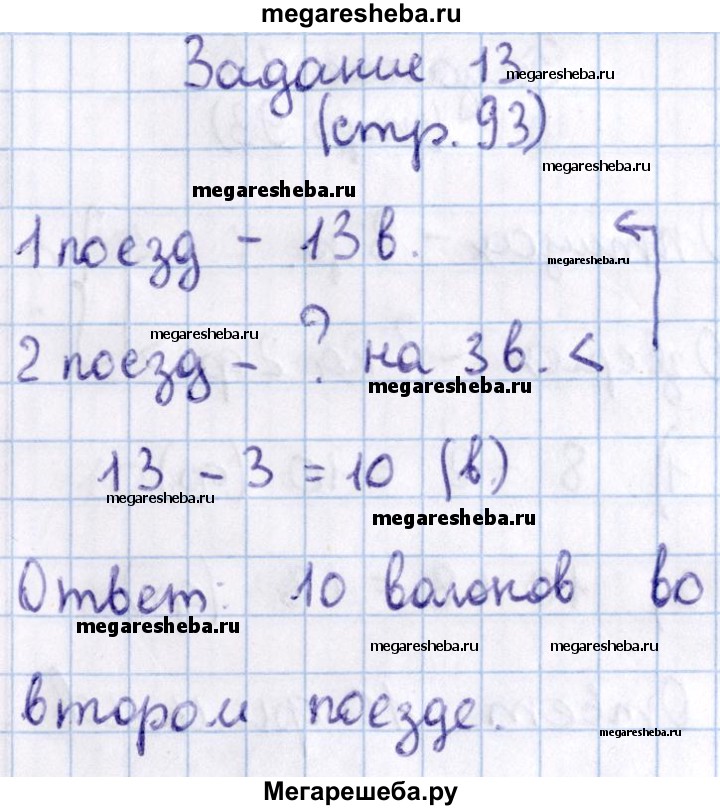 megaresheba.ru
Задание 13
megaresheba.ru
(стр. 93)
megaresheba.ru
megaresheba.ru
1 поезд - 13 в.
megaresheba.ru
megaresheba.ru
2 поезд - ? на 3 в. <
megaresheba.ru
13 - 3 = 10 (в.)
megaresheba.ru
megaresheba.ru
Ответ: 10 вагонов во
megaresheba.ru
megaresheba.ru megaresheba.ru
втором поезде.
megaresheba.ru
Мегарешеба.ру